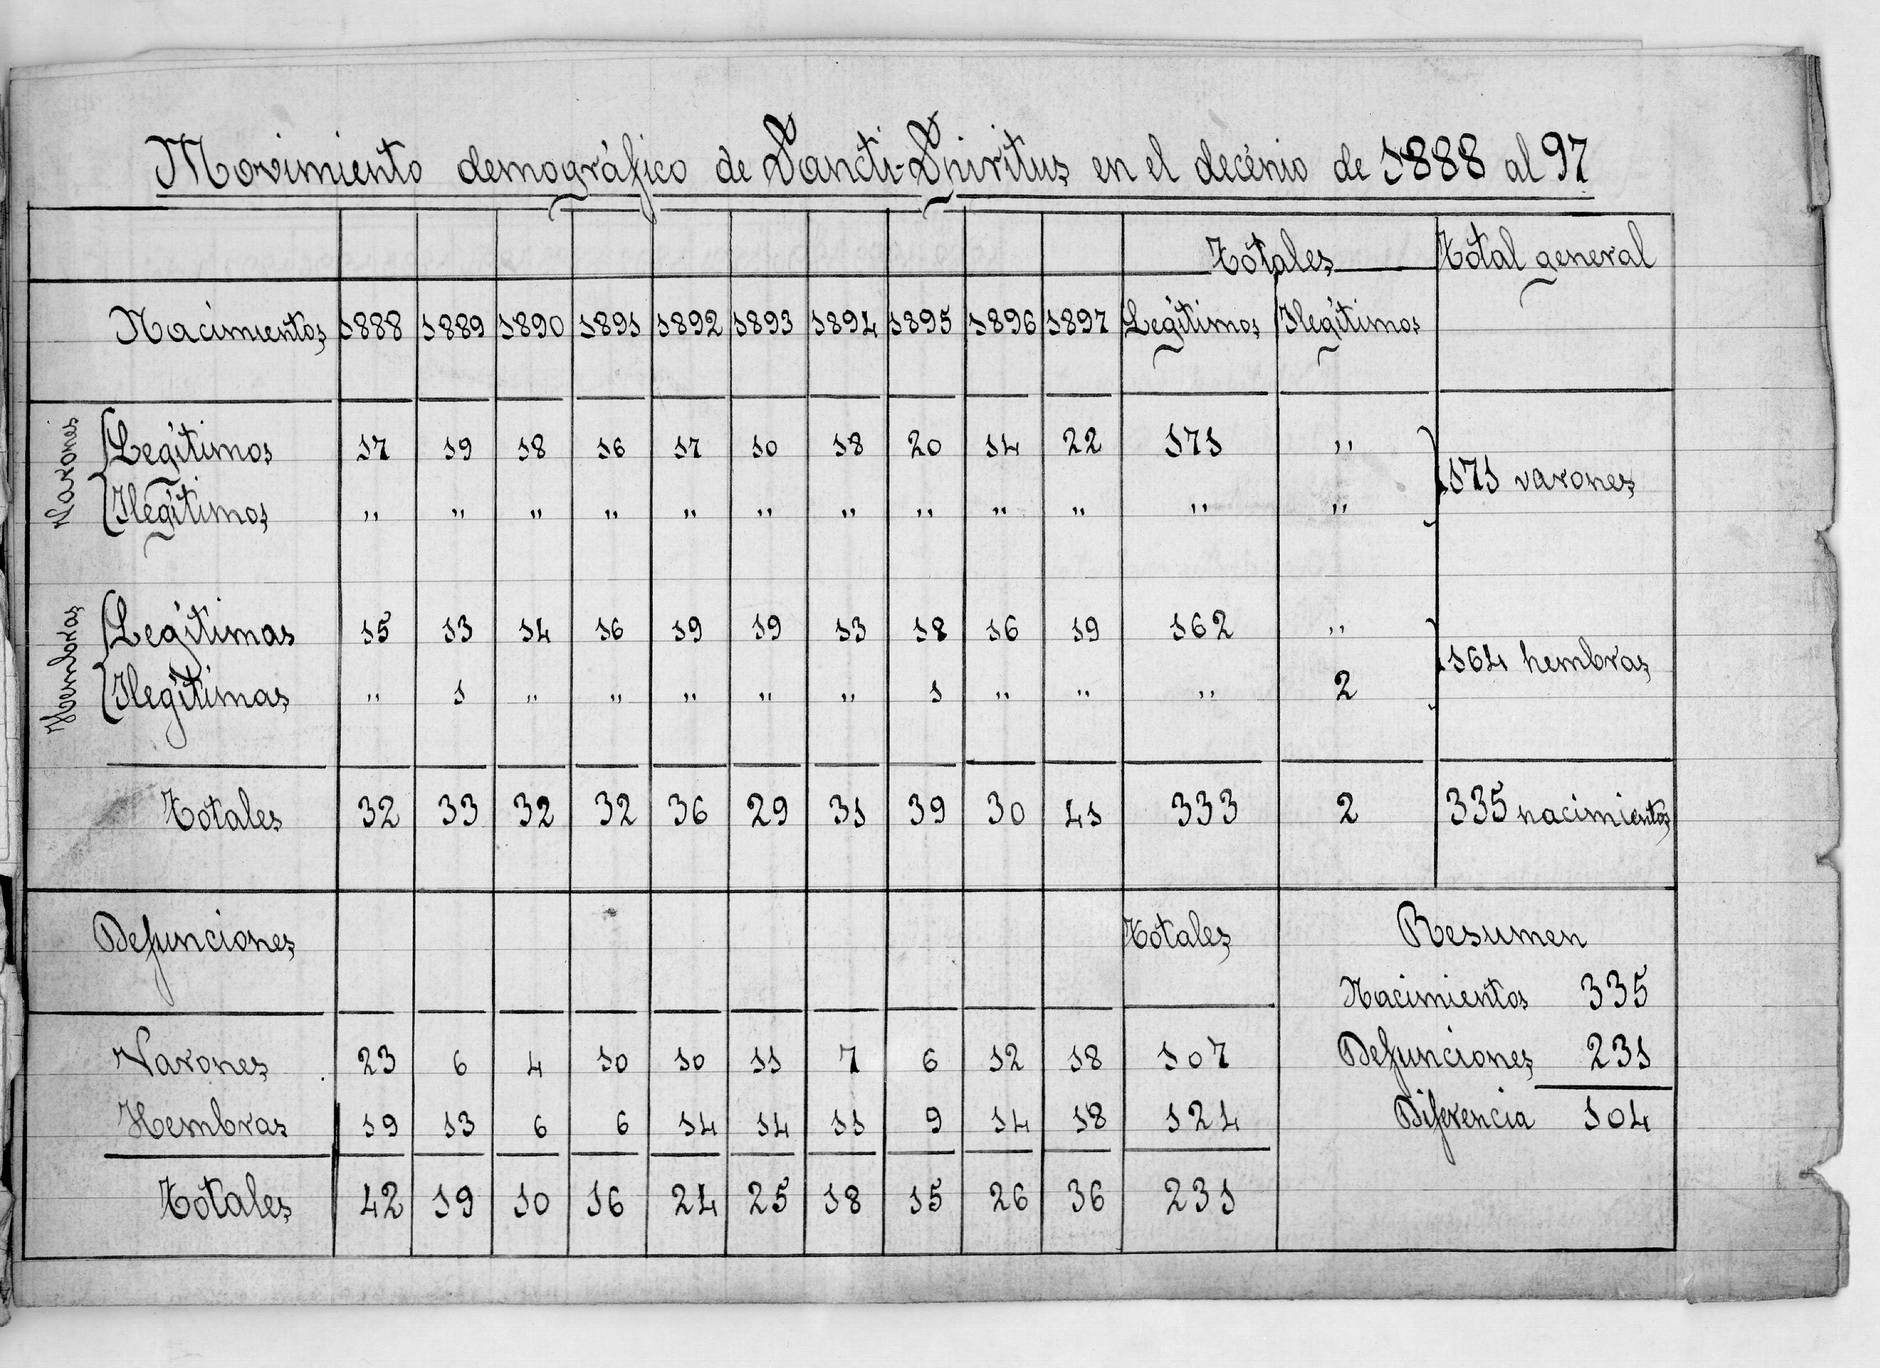 Movimiento demográfico de Sancti-Spiritus en el decénio de 1888 al 97
Totales Total general
Nacimientos 1888 1889 1890 1891 1892 1893 1894 1895 1896 1897 Legítimos Ilegítimos
Varones
Legítimos 17 19 18 16 17 10 18 20 14 22 171 „
Ilegítimos „ „ „ „ „ „ „ „ „ „ „ „
171 varones
Hembras
Legítimas 15 13 14 16 19 19 13 18 16 19 162 „
Ilegítimas „ 1 „ „ „ „ „ 1 „ „ „ 2
164 hembras
Totales 32 33 32 32 36 29 31 39 30 41 333 2 335 nacimientos
Defunciones Totales
Varones 23 6 4 10 10 11 7 6 12 18 107
Hembras 19 13 6 6 14 14 11 9 14 18 124
Totales 42 19 10 16 24 25 18 15 26 36 231
Resumen
Nacimientos 335
Defunciones 231
Diferencia 104